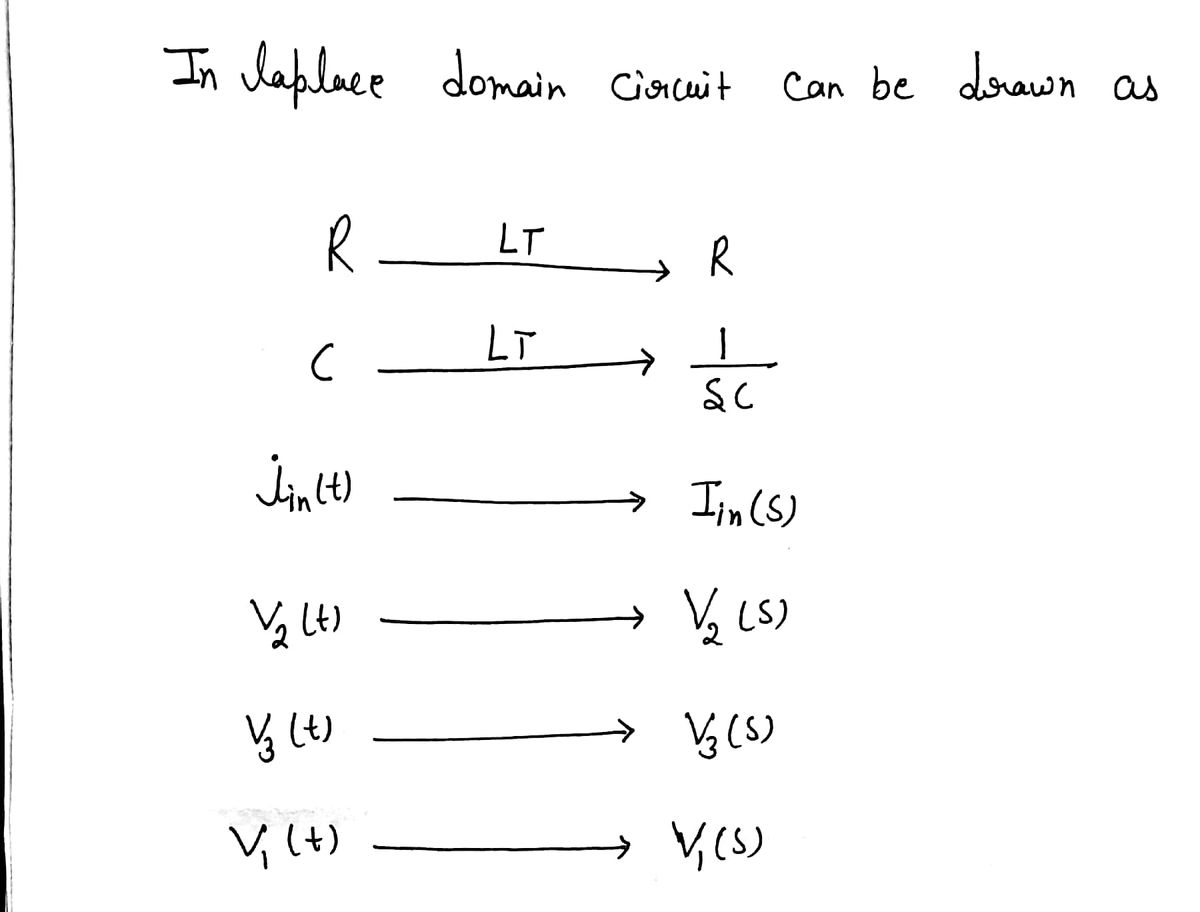 In laplace domain circuit can be drawn as
R LT → R
C LT → 1/SC
iin(t) → Iin(S)
V2(t) → V2(S)
V3(t) → V3(S)
V1(t) → V1(S)